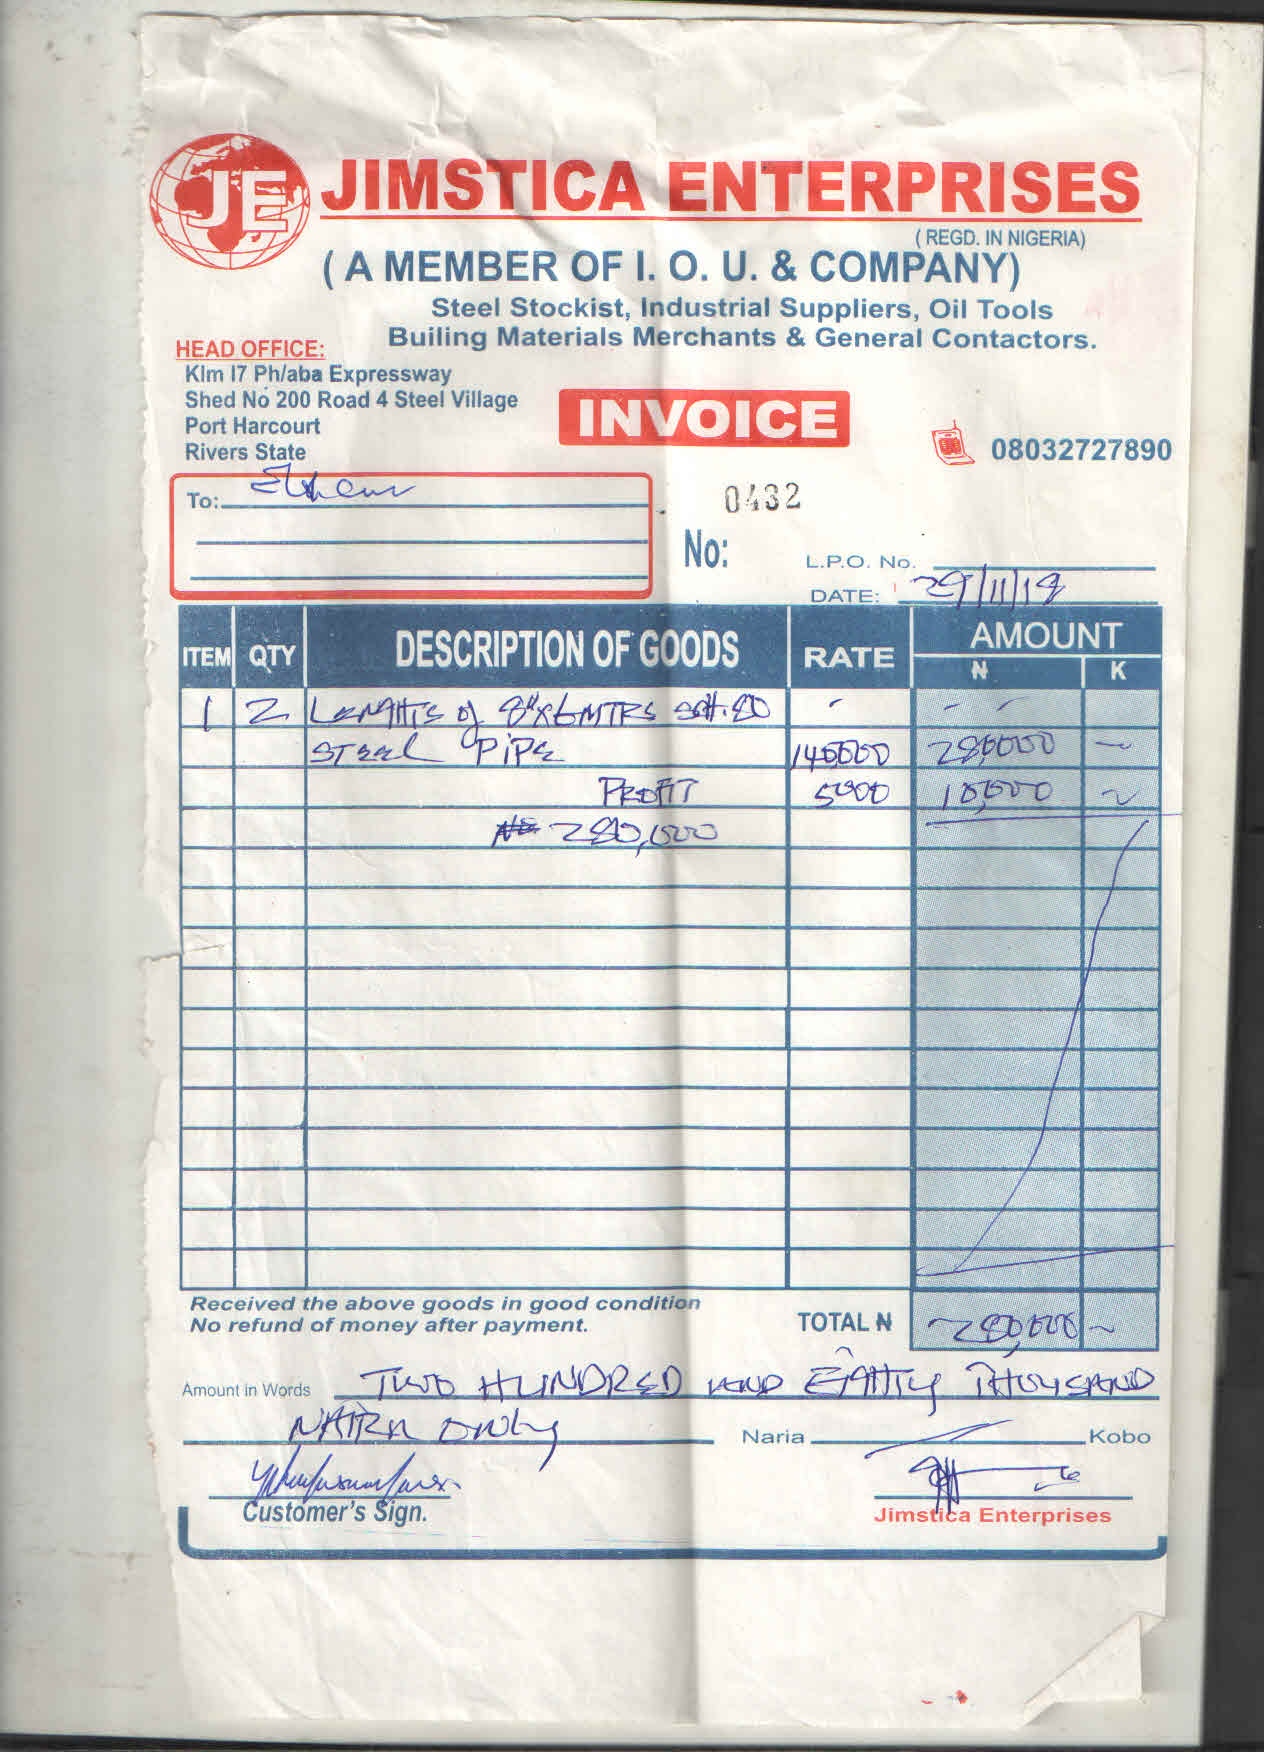 JE JIMSTICA ENTERPRISES
( REGD. IN NIGERIA)
( A MEMBER OF I. O. U. & COMPANY)
Steel Stockist, Industrial Suppliers, Oil Tools
Builing Materials Merchants & General Contactors.
HEAD OFFICE:
Klm I7 Ph/aba Expressway
Shed No 200 Road 4 Steel Village
Port Harcourt
Rivers State
INVOICE
08032727890
To:
0432
No:
L.P.O. No.
DATE: 29/11/18
ITEM QTY DESCRIPTION OF GOODS RATE AMOUNT
₦ K
1 2 Lengths of 8"x6MTRS SCH.80 - - -
Steel Pipe 140000 280,000 -
PROFIT 5000 10,000 ~
280,000
Received the above goods in good condition
No refund of money after payment.
TOTAL ₦ 280,000 ~
Amount in Words TWO HUNDRED AND EIGHTY THOUSAND
NAIRA ONLY Naria Kobo
Customer's Sign.
Jimstica Enterprises